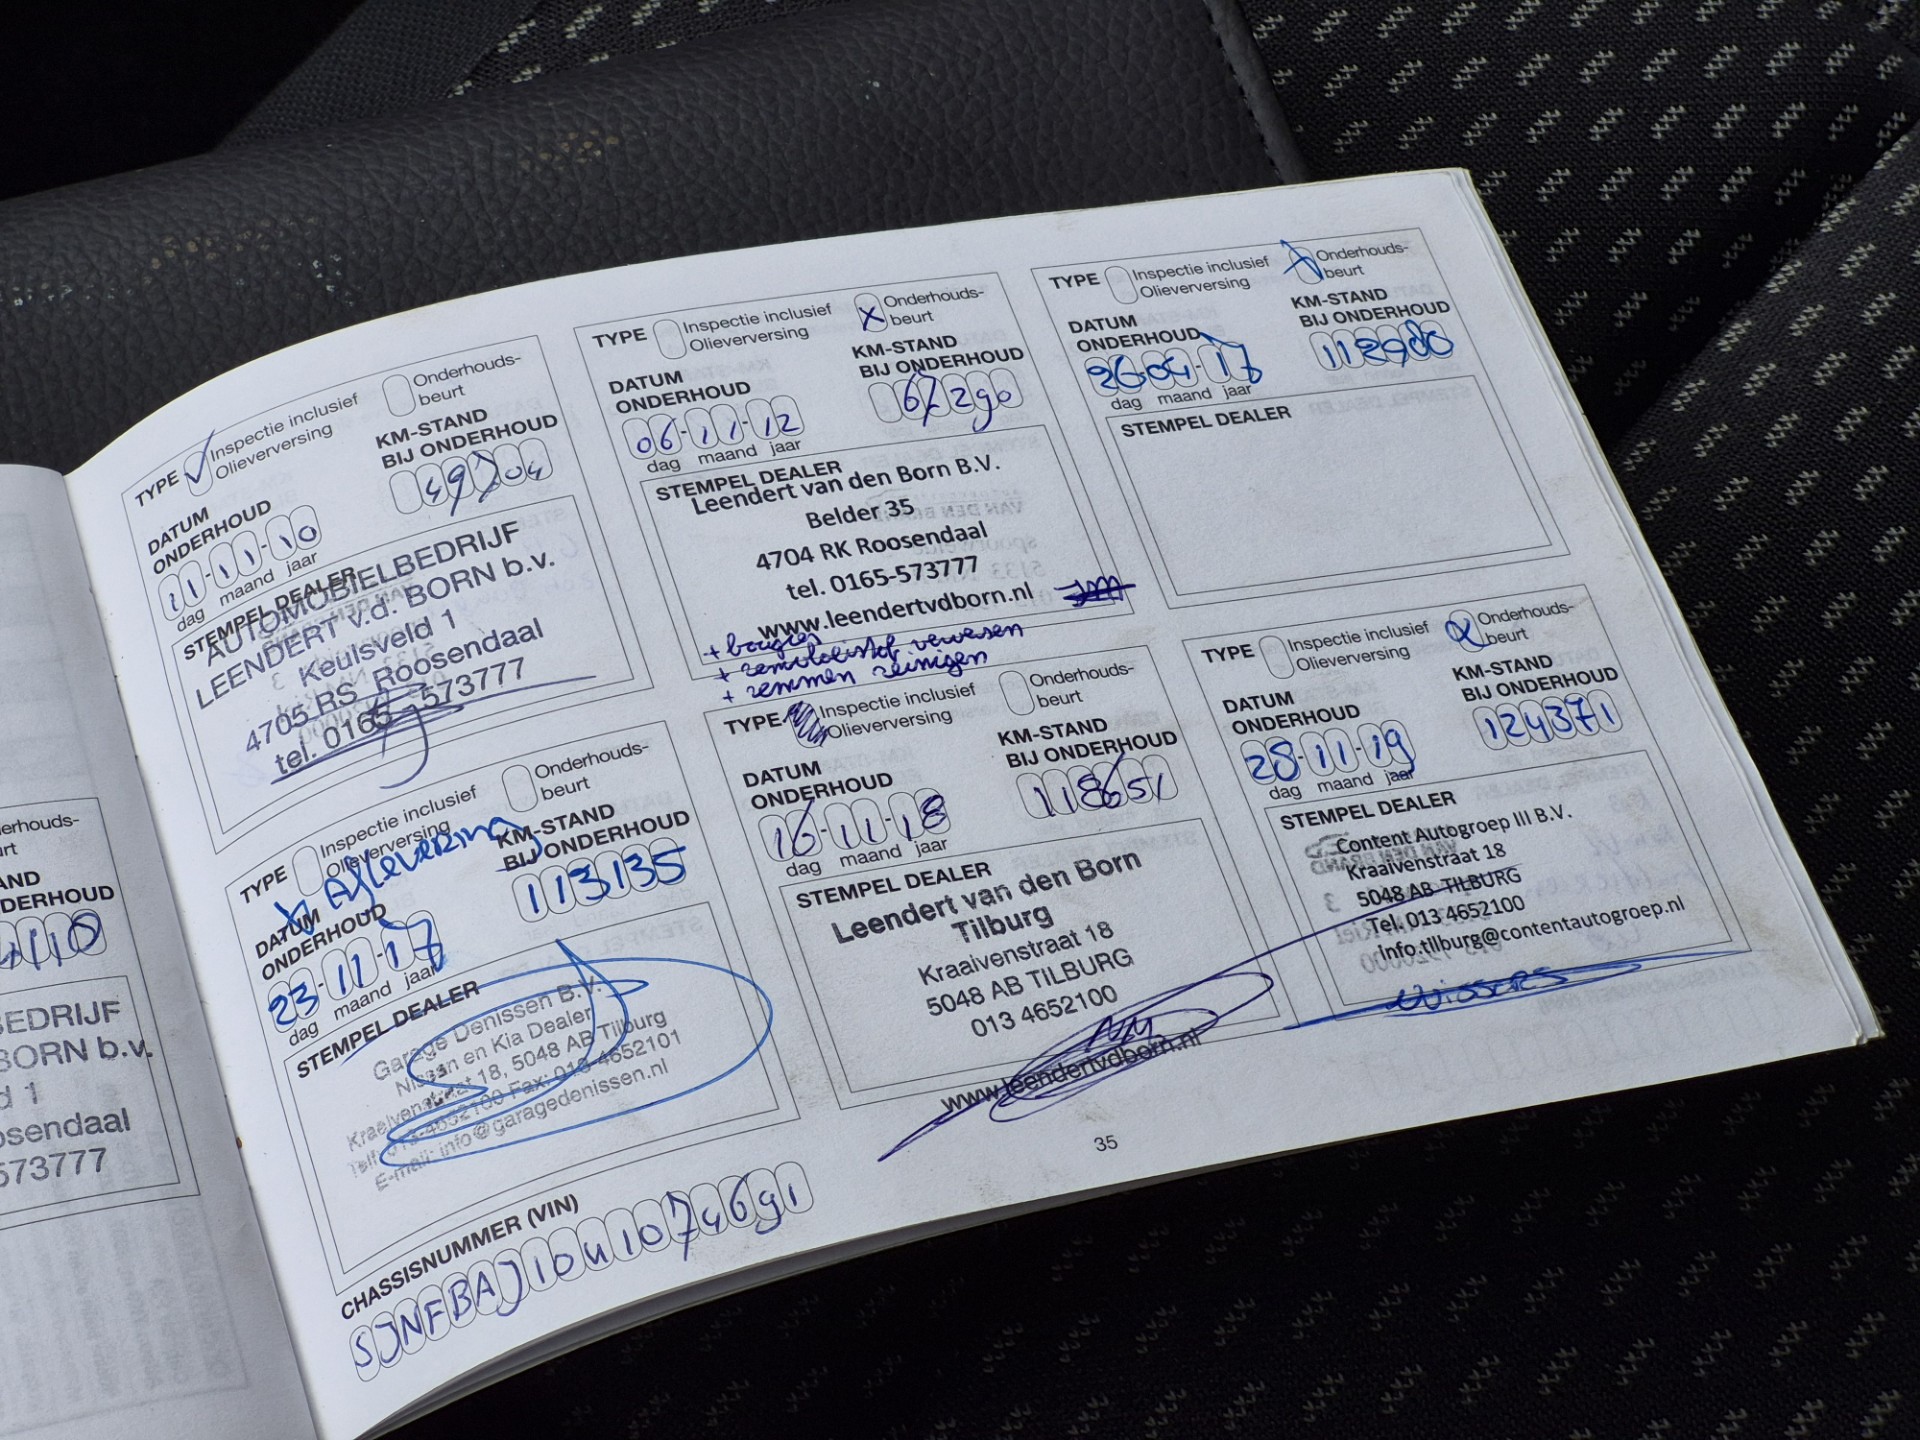 erhouds-
rt
AND
DERHOUD
BEDRIJF
BORN b.v.
d 1
osendaal
573777
TYPE Inspectie inclusief Olieverversing
Onderhouds-
beurt
DATUM
ONDERHOUD
KM-STAND
BIJ ONDERHOUD
11-11-10
49704
dag maand jaar
STEMPEL DEALER
AUTOMOBIELBEDRIJF
LEENDERT v.d. BORN b.v.
Keulsveld 1
4705 RS Roosendaal
tel. 0165-573777
TYPE Inspectie inclusief Olieverversing
X Onderhouds-
beurt
DATUM
ONDERHOUD
KM-STAND
BIJ ONDERHOUD
06-11-12
67290
dag maand jaar
STEMPEL DEALER
Leendert van den Born B.V.
Belder 35
4704 RK Roosendaal
tel. 0165-573777
www.leendertvdborn.nl
+ bougies
+ remvloeistof verversen
+ remmen reinigen
TYPE Inspectie inclusief Olieverversing
X Onderhouds-
beurt
DATUM
ONDERHOUD
KM-STAND
BIJ ONDERHOUD
26-04-17
112980
dag maand jaar
STEMPEL DEALER
TYPE Inspectie inclusief Olieverversing
Onderhouds-
beurt
X Aflevering
DATUM
ONDERHOUD
KM-STAND
BIJ ONDERHOUD
23-11-17
113135
dag maand jaar
STEMPEL DEALER
Garage Denissen B.V.
Nissan en Kia Dealer
Kraaivenstraat 18, 5048 AB Tilburg
Telf: 013-4652100 Fax: 013-4652101
E-mail: info@garagedenissen.nl
TYPE Inspectie inclusief Olieverversing
Onderhouds-
beurt
DATUM
ONDERHOUD
KM-STAND
BIJ ONDERHOUD
16-11-18
118651
dag maand jaar
STEMPEL DEALER
Leendert van den Born
Tilburg
Kraaivenstraat 18
5048 AB TILBURG
013 4652100
www.leendertvdborn.nl
TYPE Inspectie inclusief Olieverversing
Onderhouds-
beurt
DATUM
ONDERHOUD
KM-STAND
BIJ ONDERHOUD
28-11-19
124371
dag maand jaar
STEMPEL DEALER
Content Autogroep III B.V.
Kraaivenstraat 18
5048 AB TILBURG
Tel. 013 4652100
info.tilburg@contentautogroep.nl
35
CHASSISNUMMER (VIN)
SJNFBAJ10U1074691